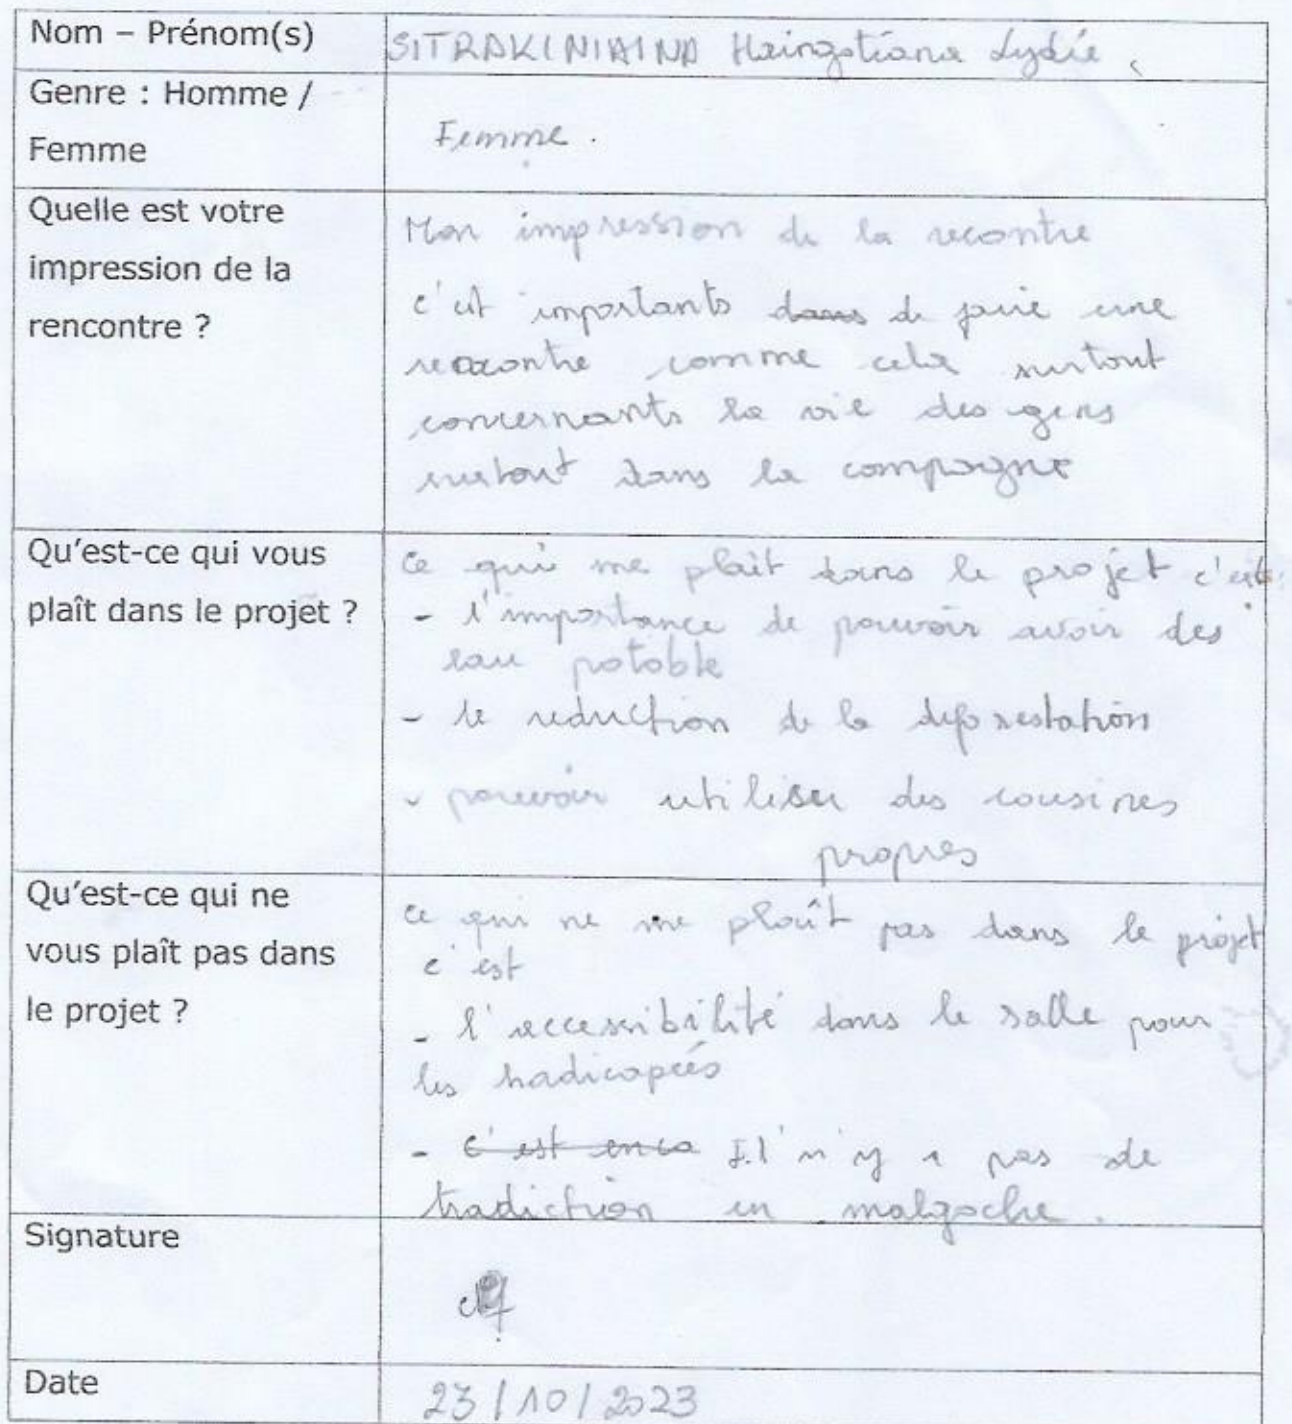 Nom – Prénom(s)
SITRAKINIAINA Haingotiana Lydie
Genre : Homme /
Femme
Femme.
Quelle est votre
impression de la
rencontre ?
Mon impression de la recontre
c'est importants dans de faire une
recontre comme cela surtout
concernants la vie des gens
surtout dans la compagne
Qu'est-ce qui vous
plaît dans le projet ?
Ce qui me plait dans le projet c'est:
- l'importance de pouvoir avoir des
eau potable
- le reduction de la deforestation
- pouvoir utiliser des cousines
propres
Qu'est-ce qui ne
vous plaît pas dans
le projet ?
ce qui ne me plaît pas dans le projet
c'est
- l'accessibilité dans le salle pour
les hadicapées
- c'est en Il n'y a pas de
tradiction en malgache.
Signature
Date
23/10/2023